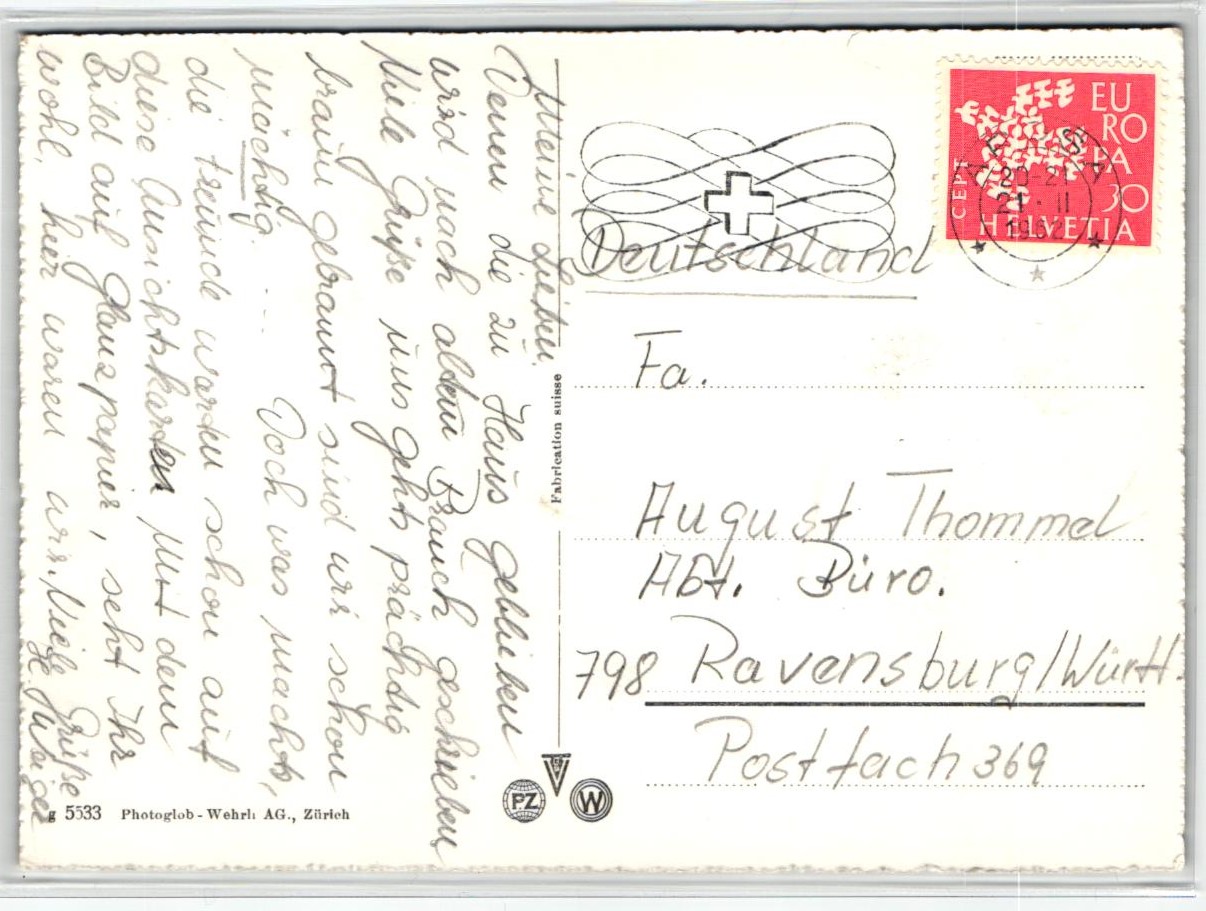 Meine Lieben.
Denen die zu Haus geblieben
wird nach altem Brauch geschrieben
Viele Grüße uns geht's prächtig
braun gebrannt sind wir schon
mächtig ....
Doch was macht's,
die Freunde warden schon auf
diese Ansichtskarten Mit dem
Bild auf Glanzpapier, seht Ihr
wohl, hier waren wir. Viele Grüße
Deutschland
Fa.
August Thommel
Abt. Büro.
798 Ravensburg/Württ.
Postfach 369
EU
RO
PA
30
CEPT
HELVETIA
20-21
21·II
1962
Fabrication suisse
PZ
W
g 5533 Photoglob-Wehrli AG., Zürich